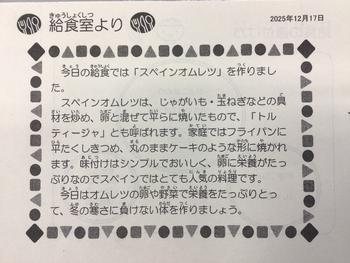 給食室より
2025年12月17日
今日の給食では「スペインオムレツ」を作りまし
た。
スペインオムレツは、じゃがいも・玉ねぎなどの具
材を炒め、卵と混ぜて平らに焼いたもので、「トル
ティージャ」とも呼ばれます。家庭ではフライパンに
平たくしきつめ、丸のままケーキのような形に焼かれ
ます。味付けはシンプルでおいしく、卵に栄養がたっ
ぷりなのでスペインではとても人気の料理です。
今日はオムレツの卵や野菜で栄養をたっぷりとっ
て、冬の寒さに負けない体を作りましょう。